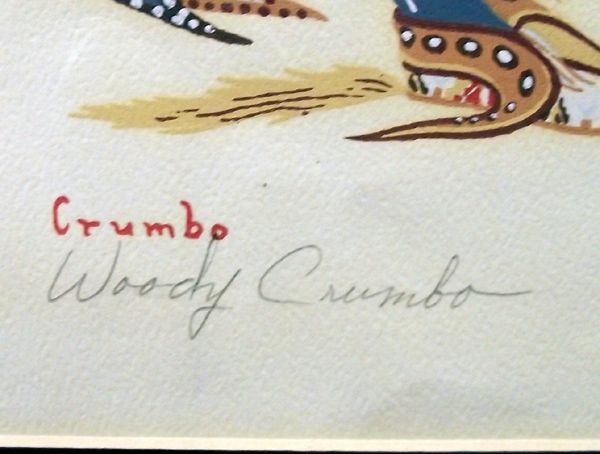 Crumbo
Woody Crumbo